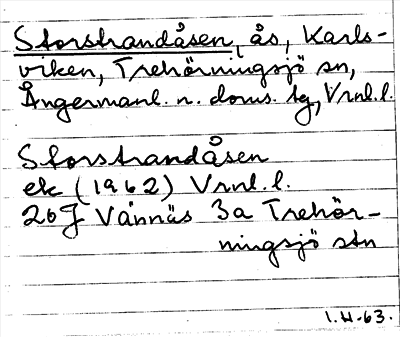 Storstrandåsen, ås, Karls-
viken, Trehörningsjö sn,
Ångermanl. n. doms. tg, Vrnl. l.
Storstrandåsen
ek (1962) Vrnl. l.
20J Vännäs 3a Trehör-
ningsjö stn
1.H-63.